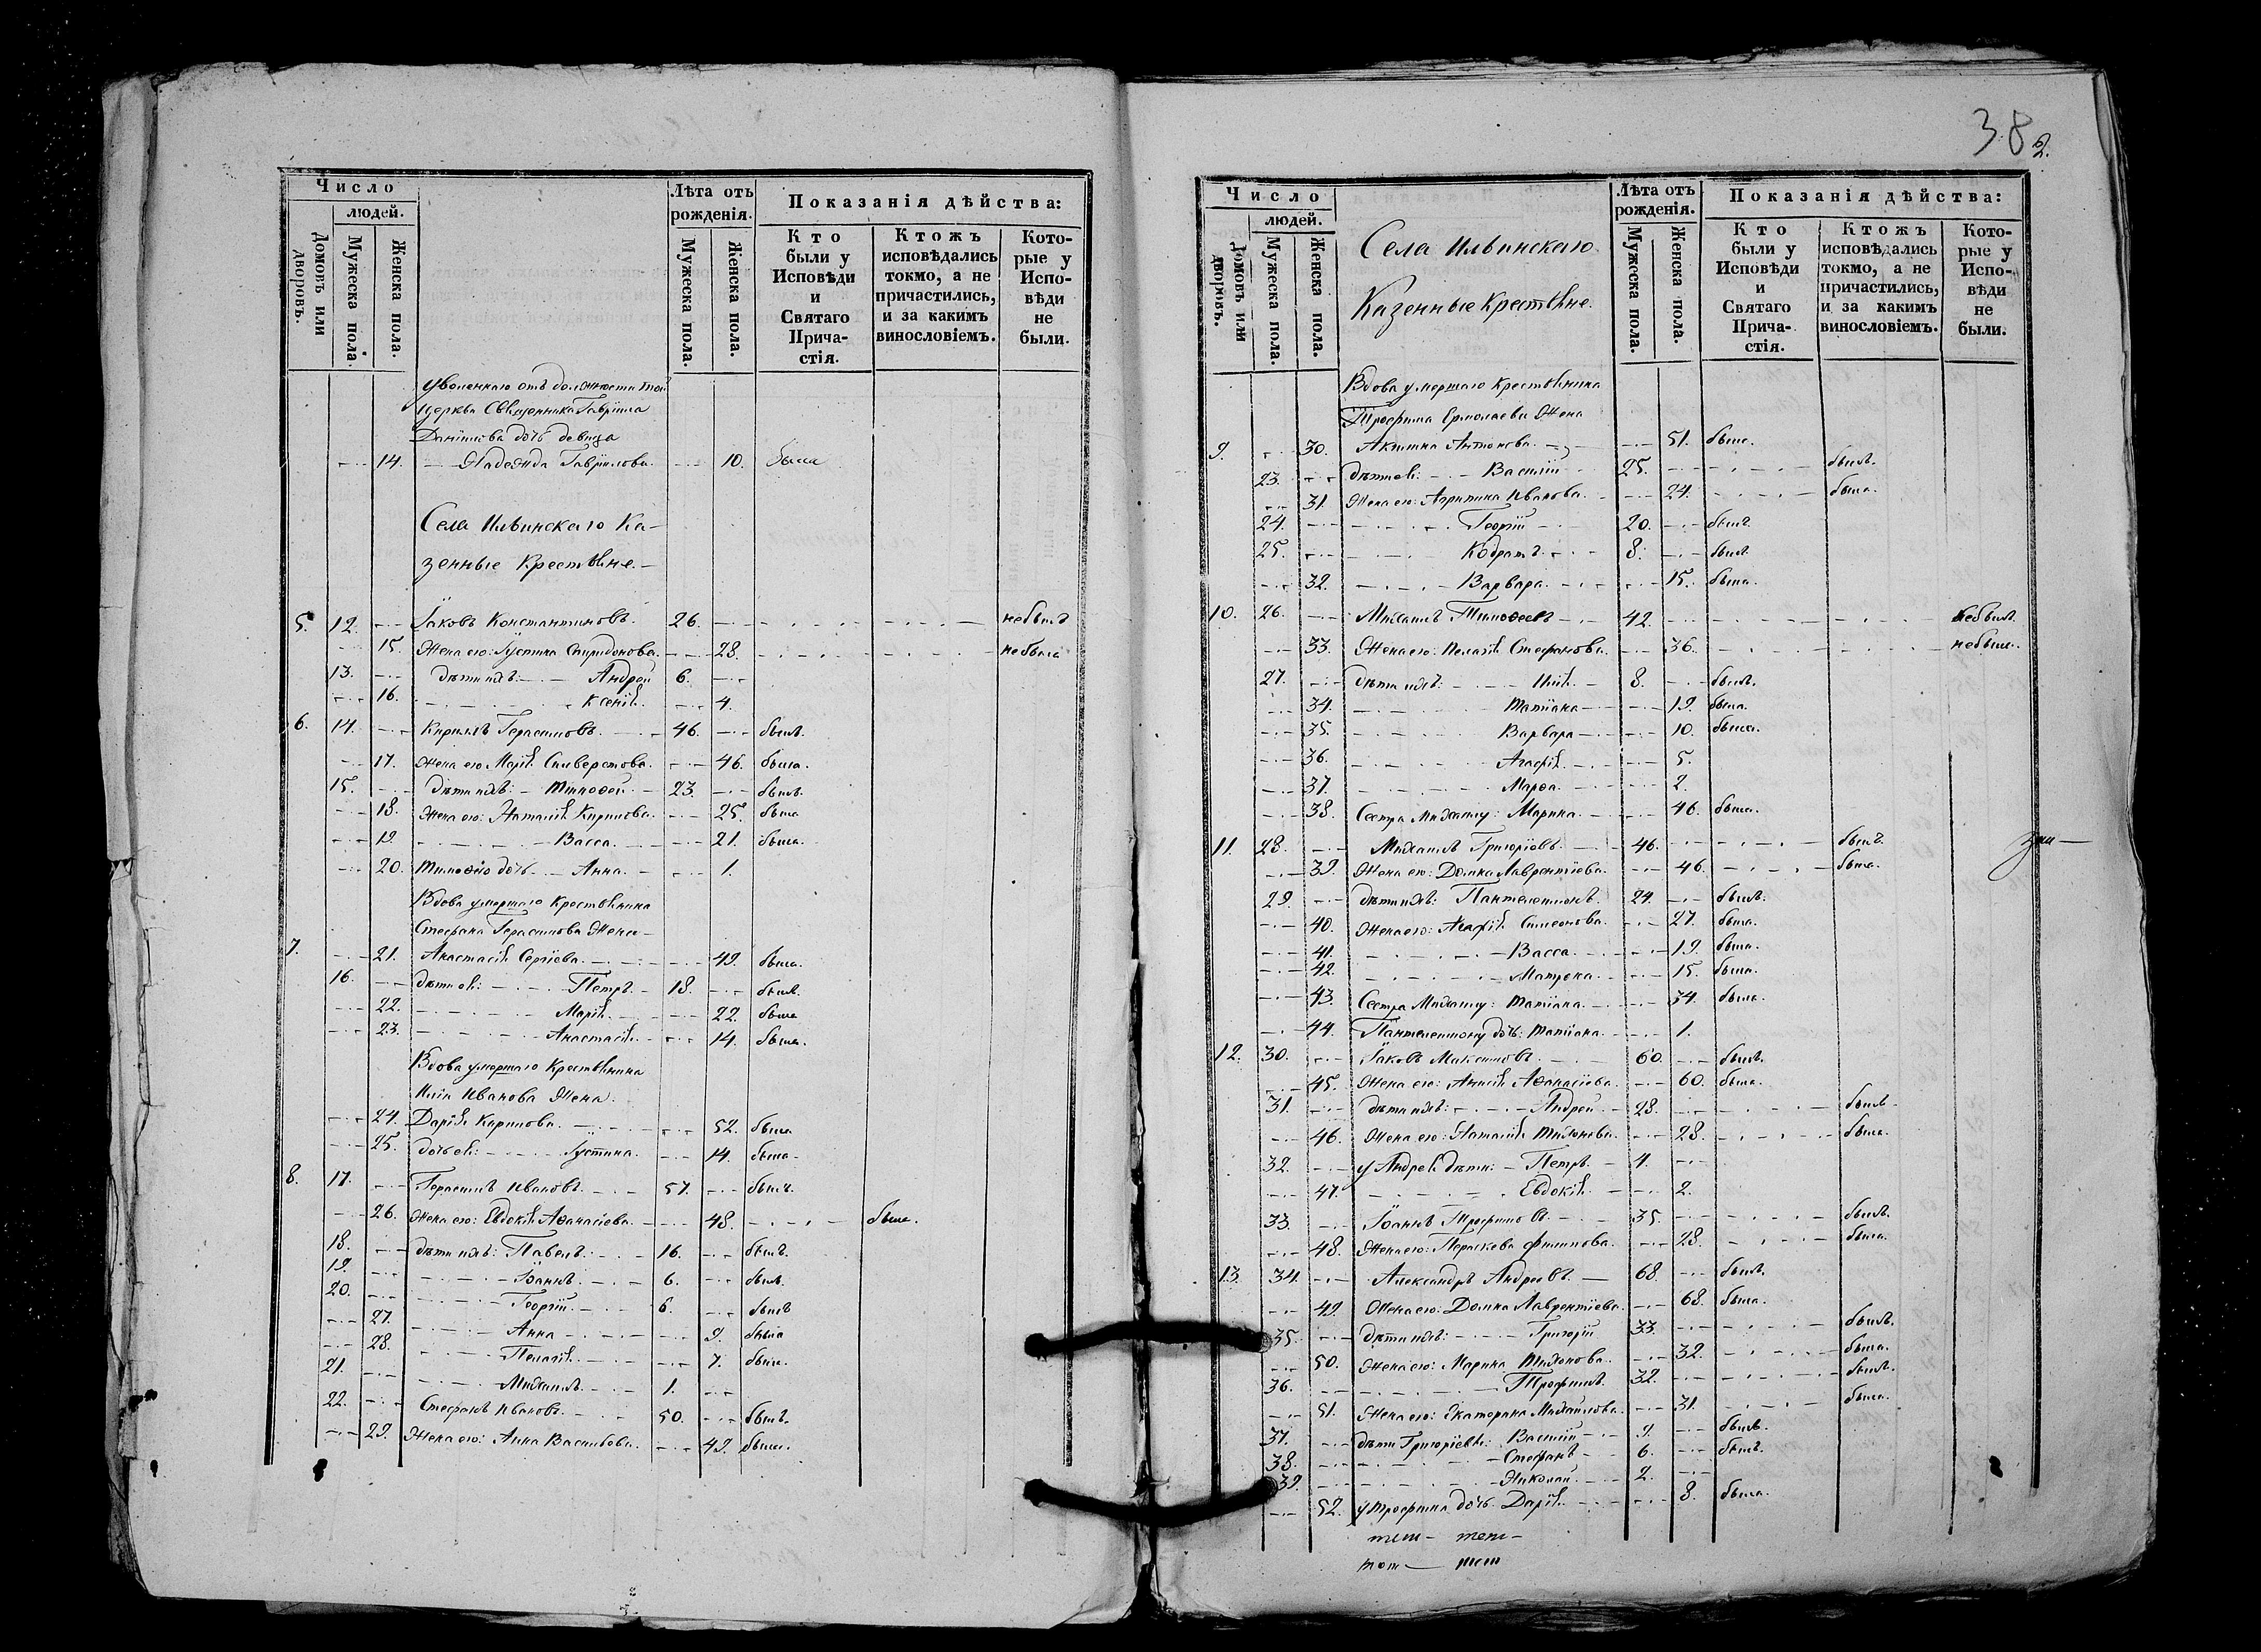 Число
людей.
Домовъ или дворовъ.
Мужеска пола.
Женска пола.
Лѣта отъ рожденія.
Мужеска пола.
Женска пола.
Показанія дѣйства:
Кто были у Исповѣди и Святаго Причастія.
Ктожъ исповѣдались токмо, а не причастились, и за какимъ винословіемъ.
Которые у Исповѣди не были.
уволеннаго отъ должности той
церкви Священника Гавріила
Данилова дочь девица
14. Надежда Гаврилова 10. была
Села Ильинскаго Ка-
зенные Крестьяне.
5. 12. Іаковъ Константиновъ 26. небылъ
15. Жена его: Іустина Спиридонова 28. небыла
13. дѣти ихъ: Андрей 6.
16. Ксенія 4.
6. 14. Кириллъ Герасимовъ 46. былъ.
17. Жена его Марія Силверстова 46. была.
15. дѣти ихъ: Тимофей 23. былъ.
18. Жена его: Наталія Кирилова 25. была
19. Васса 21. была.
20. Тимофею дочь Анна 1.
Вдова умершаго Крестьянина
Стефана Герасимова Жена
7. 21. Анастасія Сергіева 49. была.
16. дѣти ея: Петръ 18. былъ.
22. Марія 22. была
23. Анастасія 14. была.
Вдова умершаго Крестьянина
Иліи Иванова Жена
24. Дарія Карпова 52. была
25. дочь ея: Іустина 14. была
8. 17. Герасимъ Ивановъ 57. былъ.
26. Жена его: Евдокія Афанасіева 48. была.
18. дѣти ихъ: Павелъ 16. былъ.
19. Іоаннъ 6. былъ.
20. Георгій 6. былъ
27. Анна 9. была
28. Пелагія 7. была.
21. Михаилъ 1.
22. Стефанъ Ивановъ 50. былъ.
29. Жена его: Анна Василіева 49. была.
38
2.
Число
людей.
Домовъ или дворовъ.
Мужеска пола.
Женска пола.
Села Ильинскаго
Казенные Крестьяне.
Лѣта отъ рожденія.
Мужеска пола.
Женска пола.
Показанія дѣйства:
Кто были у Исповѣди и Святаго Причастія.
Ктожъ исповѣдались токмо, а не причастились, и за какимъ винословіемъ.
Которые у Исповѣди не были.
Вдова умершаго Крестьянина
Трофима Ермолаева Жена
9. 30. Акилина Антонова 51. была.
23. дѣти ея: Василій 25. былъ.
31. Жена его: Агрипина Иванова 24. была.
24. Георгій 20. былъ
25. Кодратъ 8. былъ
32. Варвара 15. была.
10. 26. Михаилъ Тимофеевъ 42. небылъ.
33. Жена его: Пелагія Стефанова 36. небыла.
27. дѣти ихъ: Илія 8. былъ.
34. Татіана 19. была.
35. Варвара 10. была.
36. Агафія 5.
37. Марфа 2.
38. Сестра Михаилу: Марина 46. была.
11. 28. Михаилъ Григоріевъ 46. былъ.
39. Жена его: Домна Лаврентіева 46. была.
29. дѣти ихъ: Пантелеимонъ 24. былъ.
40. Жена его: Агафія Симеонова 27. была.
41. Васса 19. была.
42. Матрона 15. была.
43. Сестра Михаилу: Татіана 34. была.
44. Пантелеимону дочь: Татіана 1.
12. 30. Іаковъ Максимовъ 60. былъ.
45. Жена его: Анисія Афанасіева 60. была.
31. дѣти ихъ: Андрей 28. былъ
46. Жена его: Наталія Тихонова 28. была.
32. у Андрея дѣти: Петръ 4.
47. Евдокія 2.
33. Іоаннъ Трофимовъ 35. былъ.
48. Жена его: Параскева Филипова 28. была.
13. 34. Александръ Андреевъ 68. былъ.
49. Жена его: Домна Лаврентіева 68. была.
35. дѣти ихъ: Григорій 33. былъ.
50. Жена его: Марина Тихонова 32. была.
36. Трофимъ 32. былъ.
51. Жена его: Екатерина Михаилова 31. была.
37. дѣти Григоріевы: Василій 9. былъ.
38. Стефанъ 6. былъ.
39. Николай 2.
52. у Трофима дочь Дарія 8. была.